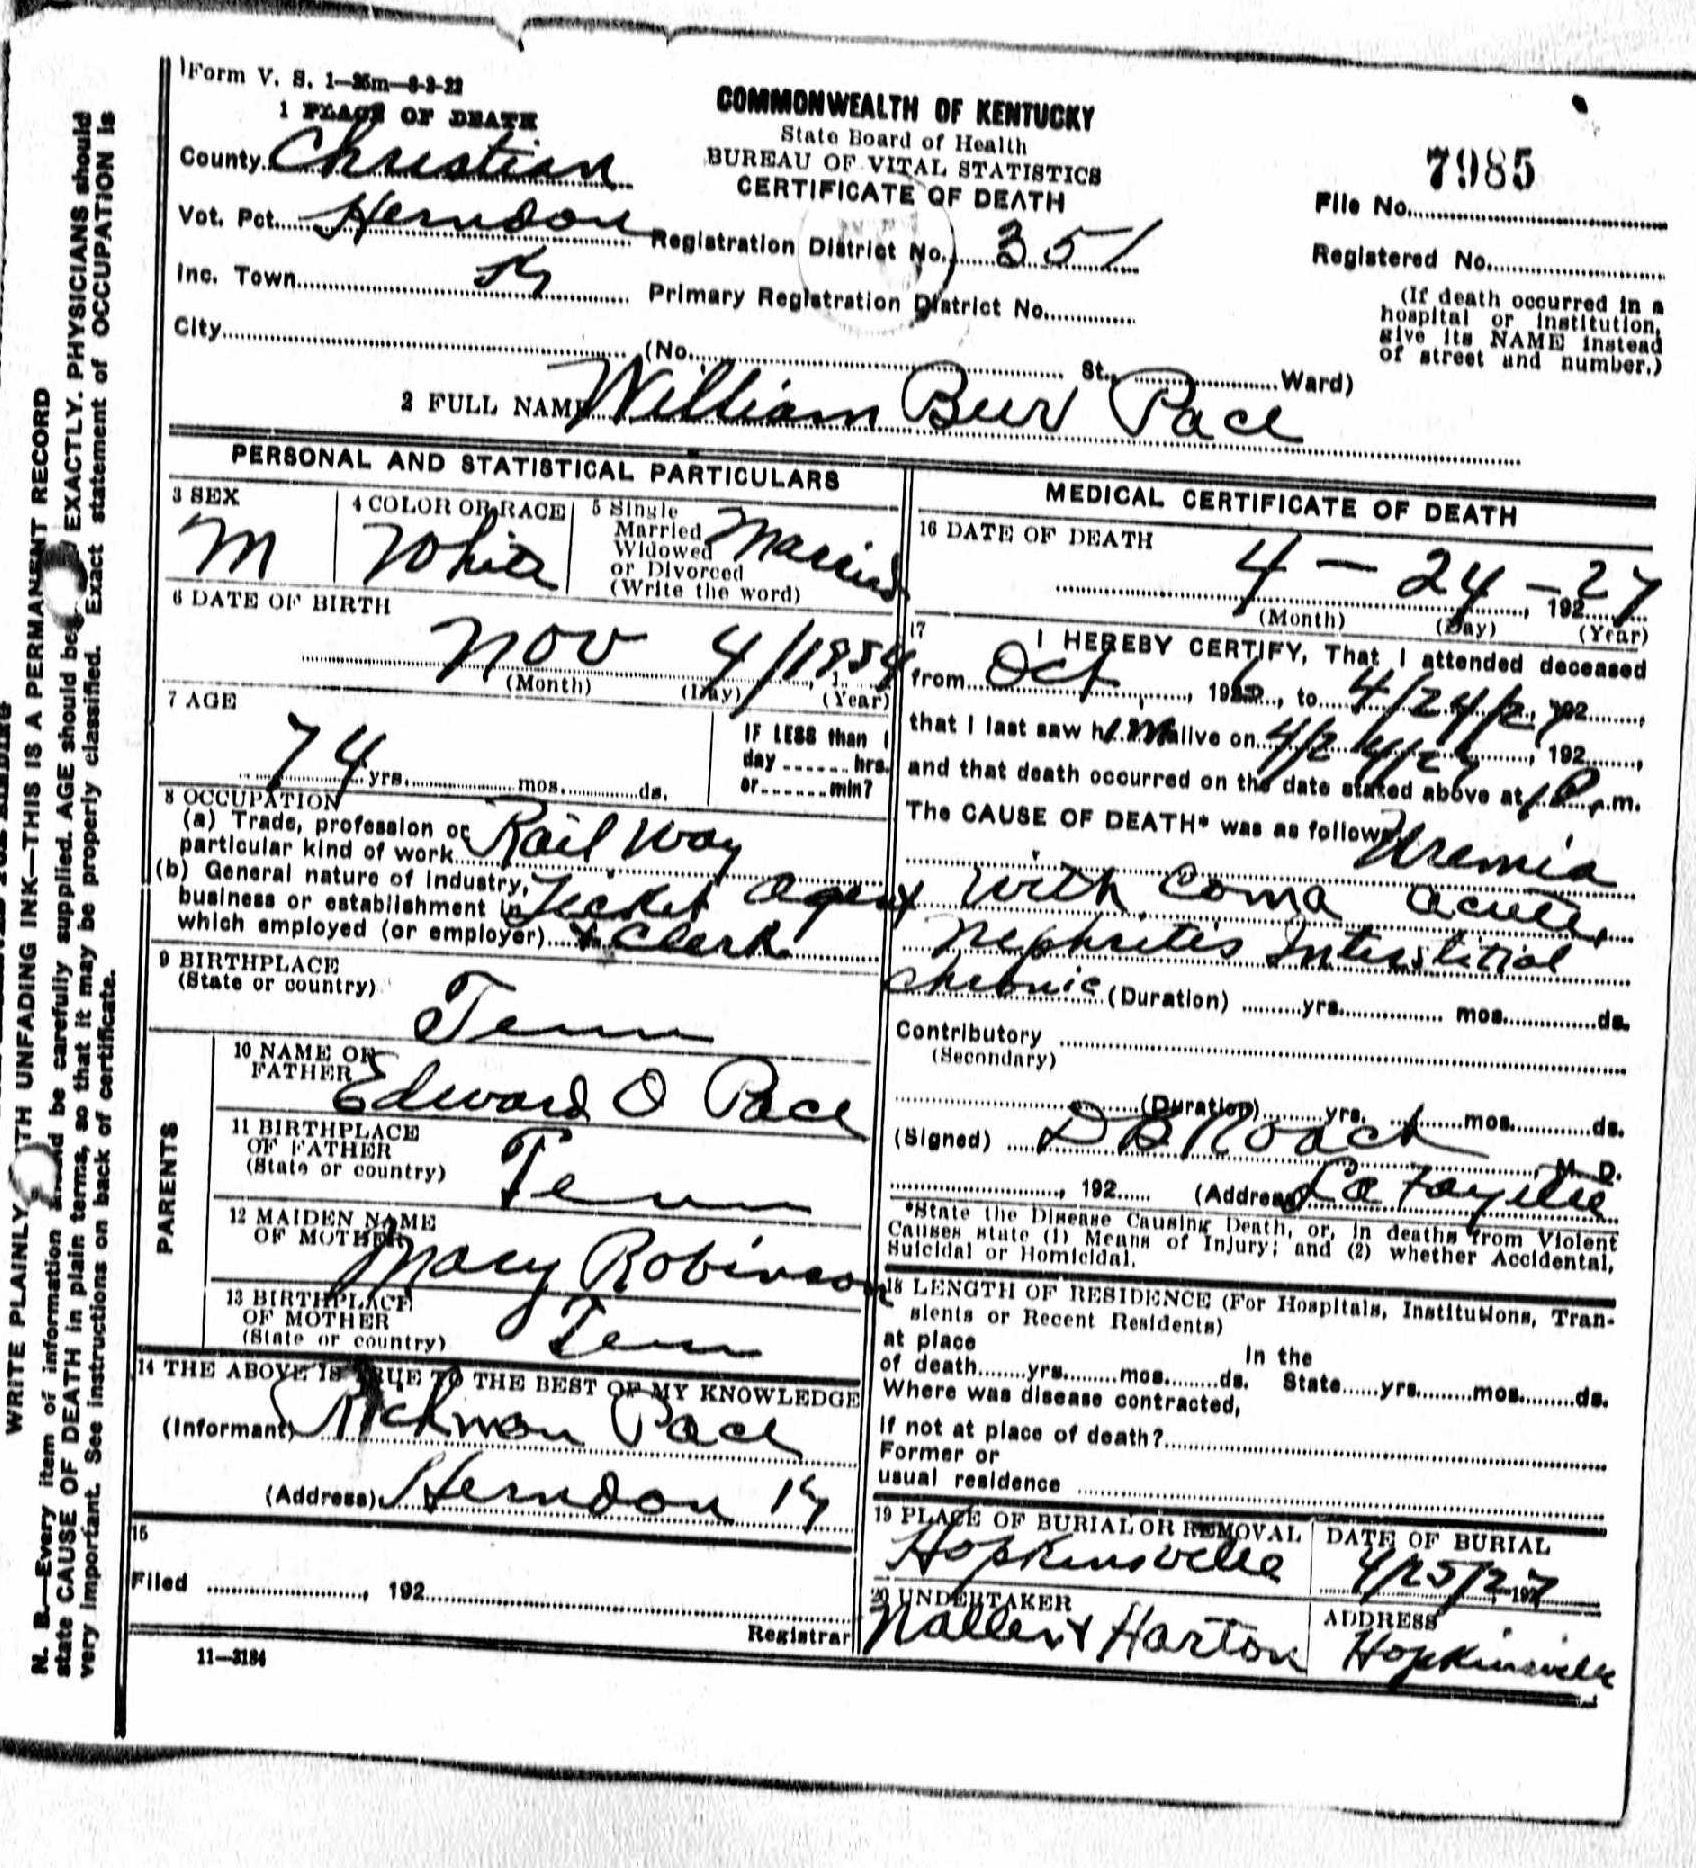 Form V. S. 1—25m—8-3-22
1 PLACE OF DEATH
COMMONWEALTH OF KENTUCKY
State Board of Health
BUREAU OF VITAL STATISTICS
CERTIFICATE OF DEATH
County Christian
Vot. Pct. Herndon
Inc. Town Ky
City
Registration District No. 351
Primary Registration District No.
7985
File No.
Registered No.
(If death occurred in a
hospital or institution,
give its NAME instead
of street and number.)
(No. St., Ward)
2 FULL NAME William Bur Pace
PERSONAL AND STATISTICAL PARTICULARS
3 SEX
M
4 COLOR OR RACE
White
5 Single
Married
Widowed
or Divorced
(Write the word)
Married
6 DATE OF BIRTH
Nov 4/1854
(Month) (Day) (Year)
7 AGE
74 yrs. mos. ds.
IF LESS than 1
day hrs.
or min?
8 OCCUPATION
(a) Trade, profession or
particular kind of work Rail Way
(b) General nature of industry,
business or establishment in Ticket agent
which employed (or employer) & Clerk
9 BIRTHPLACE
(State or country)
Tenn
PARENTS
10 NAME OF
FATHER Edward O Pace
11 BIRTHPLACE
OF FATHER
(State or country)
Tenn
12 MAIDEN NAME
OF MOTHER Mary Robinson
13 BIRTHPLACE
OF MOTHER
(State or country)
Tenn
14 THE ABOVE IS TRUE TO THE BEST OF MY KNOWLEDGE
(Informant) Rickmon Pace
(Address) Herndon Ky
15
Filed , 192
Registrar
11—3184
MEDICAL CERTIFICATE OF DEATH
16 DATE OF DEATH
4 — 24 — 27
, 192
(Month) (Day) (Year)
17
I HEREBY CERTIFY, That I attended deceased
from Oct , 1926, to 4/24/27, 192 ,
that I last saw him alive on 4/24/27, 192 ,
and that death occurred on the date stated above at 1 P. m.
The CAUSE OF DEATH* was as follows: Uremia
with Coma acute,
Nephritis Interstitial
chronic (Duration) yrs. mos. ds.
Contributory
(Secondary)
(Duration) yrs. mos. ds.
(Signed) D B Roach, M. D.
, 192 (Address) La Fayette
*State the Disease Causing Death, or, in deaths from Violent
Causes state (1) Means of Injury; and (2) whether Accidental,
Suicidal or Homicidal.
18 LENGTH OF RESIDENCE (For Hospitals, Institutions, Tran-
sients or Recent Residents)
at place In the
of death yrs. mos. ds. State yrs. mos. ds.
Where was disease contracted,
if not at place of death?
Former or
usual residence
19 PLACE OF BURIAL OR REMOVAL
Hopkinsville
DATE OF BURIAL
4/25/27 192
20 UNDERTAKER
Nallen & Harton
ADDRESS
Hopkinsville
WRITE PLAINLY WITH UNFADING INK—THIS IS A PERMANENT RECORD
N. B.—Every item of information should be carefully supplied. AGE should be EXACTLY. PHYSICIANS should
state CAUSE OF DEATH in plain terms, so that it may be properly classified. Exact statement of OCCUPATION is
very important. See instructions on back of certificate.